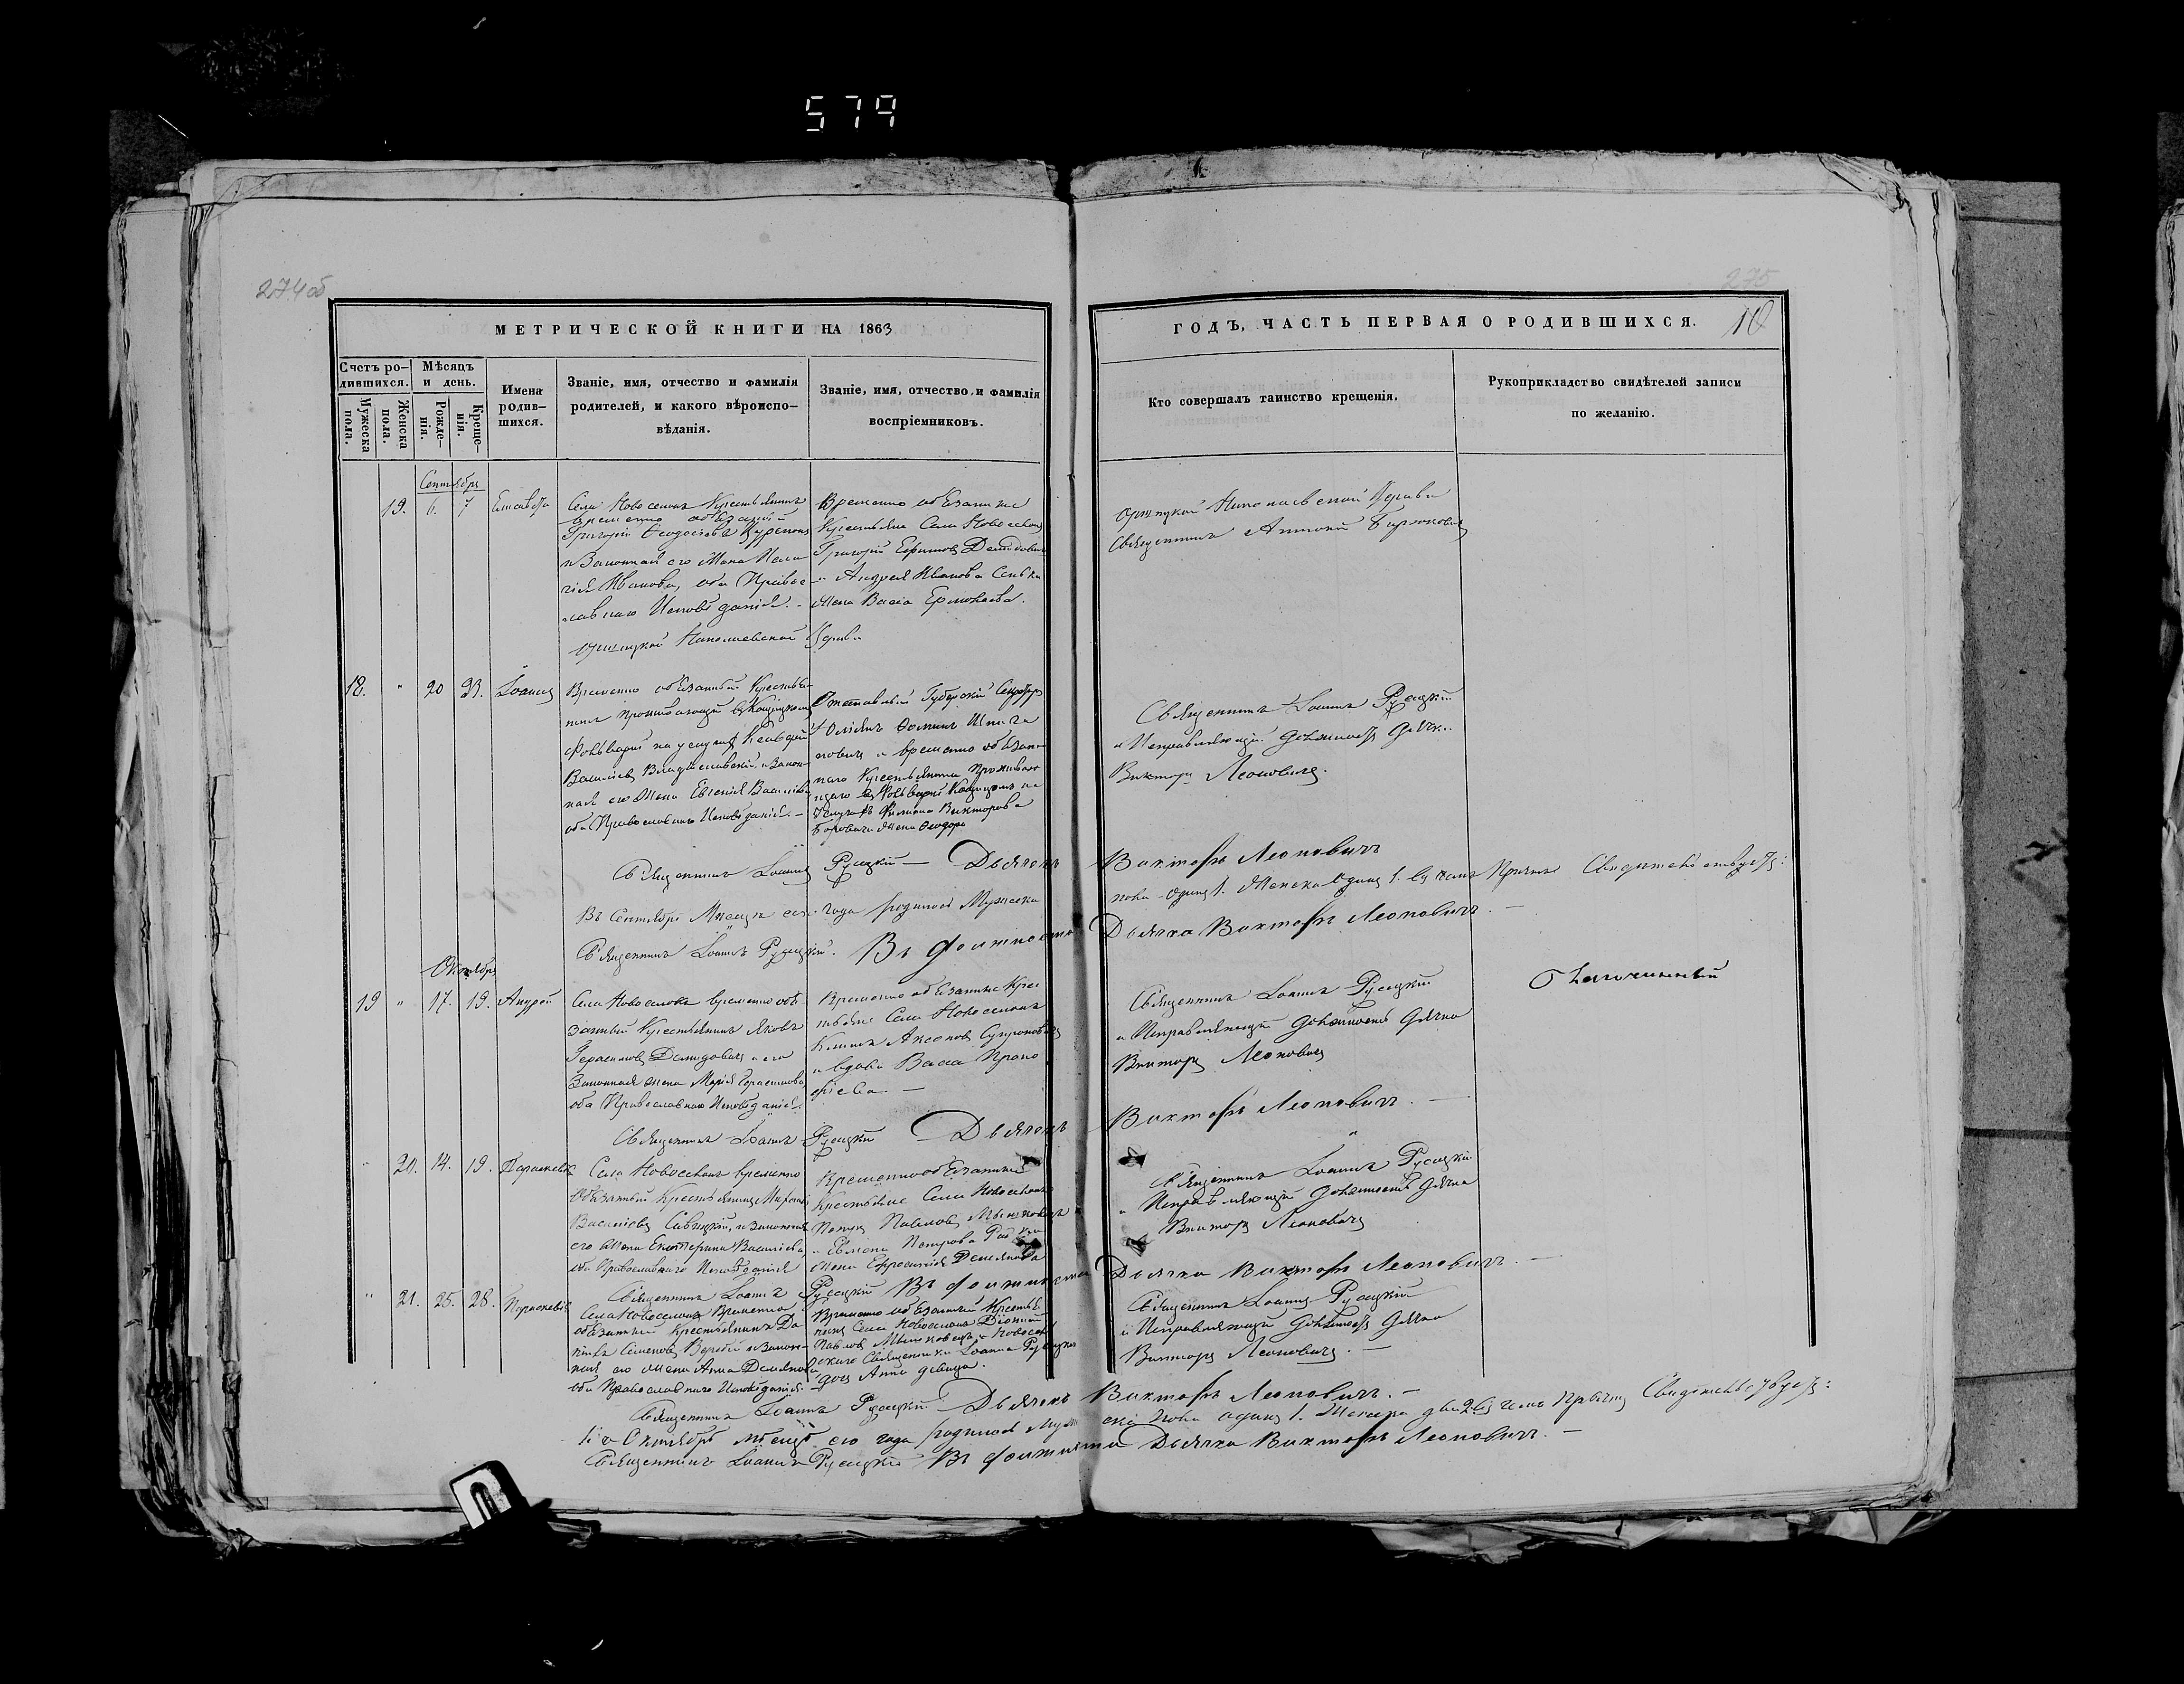 579
274 об
275
МЕТРИЧЕСКОЙ КНИГИ НА 1863
ГОДЪ, ЧАСТЬ ПЕРВАЯ О РОДИВШИХСЯ.
10
Счетъ ро-
дившихся.
Мужеска
пола.
Женска
пола.
Мѣсяцъ
и день.
Рожде-
нія.
Креще-
нія.
Имена
родив-
шихся.
Званіе, имя, отчество и фамилія
родителей, и какого вѣроиспо-
вѣданія.
Званіе, имя, отчество и фамилія
воспріемниковъ.
Кто совершалъ таинство крещенія.
Рукоприкладство свидѣтелей записи
по желанію.
Сентября
19. 6. 7 Елисавета
Села Новоселокъ Крестьянинъ
временно обязанный
Григорій Ѳеодосіевъ
и Законная его Жена Пела
гія Иванова, оба Правос-
лавнаго Исповѣданія. -
Временно обязанные
Крестьяне Села Новоселокъ
Григорій Ефимовъ Демидовичъ
и Андрея Иванова
Жена Васса Ермолаева.
Николаевской Церкви
Священникъ Антоній Бирюковичъ
Николаевской Церкви
18. " 20 23. Іоаннъ
Временно обязанный Крестья-
нинъ проживающій въ
фольваркѣ на услугахъ
Василіевъ и Закон-
ная его Жена Евгенія Василіева
оба Православнаго Исповѣданія. -
Отставный Губернскій Секретарь
и временно обязан-
наго Крестьянина Проживаю
щаго въ Фольваркѣ на
услугахъ Викторова
Жена Ѳеодора
Священникъ Іоаннъ Русецкій
и Исправляющій должность Дьячка
Викторъ Леоновичъ.
Священникъ Іоаннъ Русецкій — Дьячокъ Викторъ Леоновичъ
Въ Сентябрѣ Мѣсяцѣ сего года родилось Мужеска пола один 1. Женска один 1. въ чемъ Причтъ Свидѣтельствуетъ:
Священникъ Іоаннъ Русецкій. Въ должности Дьячка Викторъ Леоновичъ. -
Октября
19 " 17. 19. Андрей
Села Новоселокъ временно обя-
занный Крестьянинъ Яковъ
Герасимовъ Демидовичъ и его
Законная жена Марія Герасимова
оба Православнаго Исповѣданія.
Временно обязанные Крес
тьяне Села Новоселокъ
Аксеновъ
и вдова Васса Проко
фіева. —
Священникъ Іоаннъ Русецкій
и Исправляющій должность Дьячка
Викторъ Леоновичъ
Священникъ Іоаннъ Русецкій — Дьячокъ Викторъ Леоновичъ. —
" 20. 14. 19. Параскева
Села Новоселокъ временно
обязанный Крестьянинъ
Василіевъ и законная
его жена Екатерина Василіева
оба Православнаго Исповѣданія
Временно обязанный
Крестьяне Села Новоселокъ
Павловъ
Петрова
жена Ефросинія Демьянова
Священникъ Іоаннъ Русецкій
и Исправляющій должность Дьячка
Викторъ Леоновичъ
Священникъ Іоаннъ Русецкій Въ должности Дьячка Викторъ Леоновичъ. —
" 21. 25. 28. Параскевія
Села Новоселокъ Временно
обязанный Крестьянинъ
Семеновъ и закон-
ная его жена Анна Демьянова
оба Православнаго Исповѣданія. -
Временно обязанный Крестья
нинъ Села Новоселокъ
Павловъ и Новосел
скаго Священника Іоанна Русецкаго
дочь Анна девица.
Священникъ Іоаннъ Русецкій
и Исправляющій должность Дьячка
Викторъ Леоновичъ. —
Священникъ Іоаннъ Русецкій — Дьячокъ Викторъ Леоновичъ. -
Октябрѣ мѣсяцѣ сего года родилось Мужеска пола один 1. Женска два 2 въ чемъ Причтъ Свидѣтельствуетъ:
Священникъ Іоаннъ Русецкій Въ должности Дьячка Викторъ Леоновичъ. -